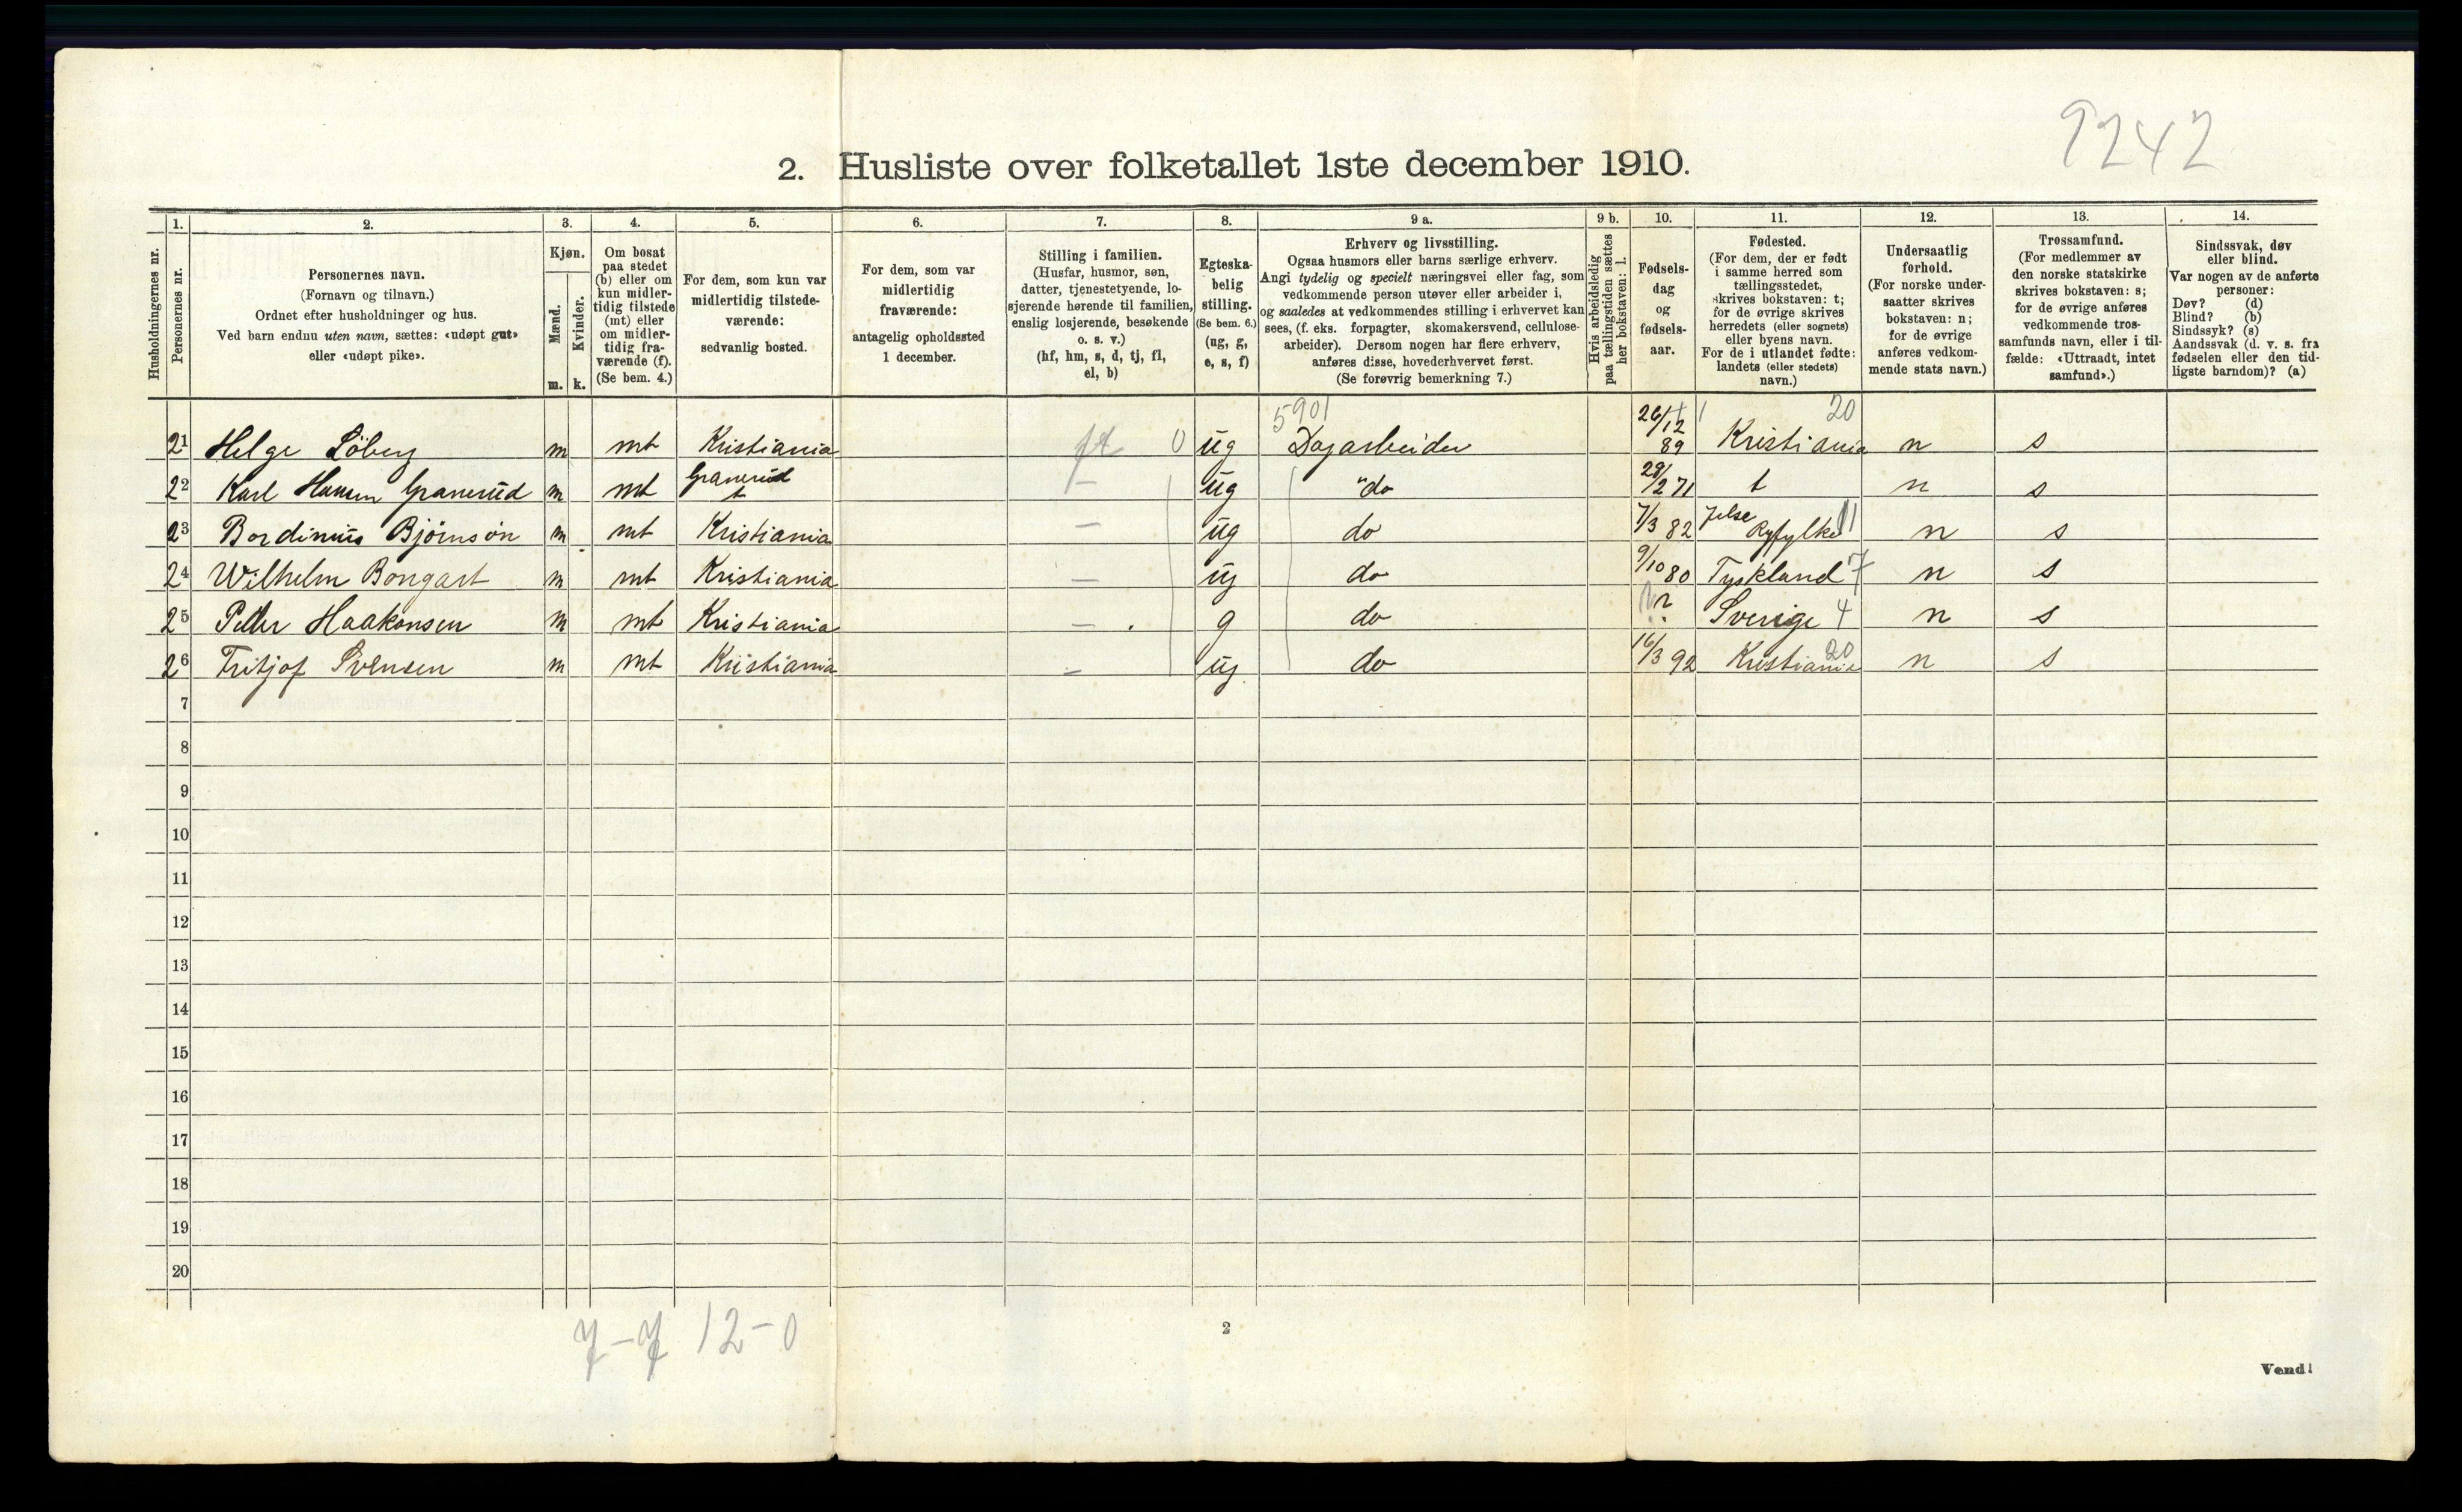 9242
2. Husliste over folketallet 1ste december 1910.
Husholdningernes nr.
1.
Personernes nr.
2.
Personernes navn.
(Fornavn og tilnavn.)
Ordnet efter husholdninger og hus.
Ved barn endnu uten navn, sættes: «udøpt gut»
eller «udøpt pike».
3.
Kjøn.
Mænd.
Kvinder.
m. k.
4.
Om bosat
paa stedet
(b) eller om
kun midler-
tidig tilstede
(mt) eller
om midler-
tidig fra-
værende (f).
(Se bem. 4.)
5.
For dem, som kun var
midlertidig tilstede-
værende:
sedvanlig bosted.
6.
For dem, som var
midlertidig
fraværende:
antagelig opholdssted
1 december.
7.
Stilling i familien.
(Husfar, husmor, søn,
datter, tjenestetyende, lo-
sjerende hørende til familien,
enslig losjerende, besøkende
o. s. v.)
(hf, hm, s, d, tj, fl,
el, b)
8.
Egteska-
belig
stilling.
(Se bem. 6.)
(ug, g,
e, s, f)
9 a.
Erhverv og livsstilling.
Ogsaa husmors eller barns særlige erhverv.
Angi tydelig og specielt næringsvei eller fag, som
vedkommende person utøver eller arbeider i,
og saaledes at vedkommendes stilling i erhvervet kan
sees, (f. eks. forpagter, skomakersvend, cellulose-
arbeider). Dersom nogen har flere erhverv,
anføres disse, hovederhvervet først.
(Se forøvrig bemerkning 7.)
9 b.
Hvis arbeidsledig
paa tællingstiden sættes
her bokstaven: l.
10.
Fødsels-
dag
og
fødsels-
aar.
11.
Fødested.
(For dem, der er født
i samme herred som
tællingsstedet,
skrives bokstaven: t;
for de øvrige skrives
herredets (eller sognets)
eller byens navn.
For de i utlandet fødte:
landets (eller stedets)
navn.)
12.
Undersaatlig
forhold.
(For norske under-
saatter skrives
bokstaven: n;
for de øvrige
anføres vedkom-
mende stats navn.)
13.
Trossamfund.
(For medlemmer av
den norske statskirke
skrives bokstaven: s;
for de øvrige anføres
vedkommende tros-
samfunds navn, eller i til-
fælde: «Uttraadt, intet
samfund».)
14.
Sindssvak, døv
eller blind.
Var nogen av de anførte
personer:
Døv? (d)
Blind? (b)
Sindssyk? (s)
Aandssvak (d. v. s. fra
fødselen eller den tid-
ligste barndom)? (a)
5901 20
21 Helge Löberg m mt Kristiania 0 ug Dagarbeider 26/12 89 Kristiania n s
22 Karl Hansen Granerud m mt Granerud t — ug "do 28/2 71 t n s
23 Bordinius Bjørnsøn m mt Kristiania — ug do 7/3 82 Jelse Ryfylke 11 n s
24 Wilhelm Bongart m mt Kristiania — ug do 9/10 80 Tyskland 7 n s
25 Petter Haakonsen m mt Kristiania — g do ? Sverige 4 n s
26 Fritjof Svensen m mt Kristiania — ug do 16/3 92 Kristiania 20 n s
7
8
9
10
11
12
13
14
15
16
17
18
19
20
12-0
2
Vend!